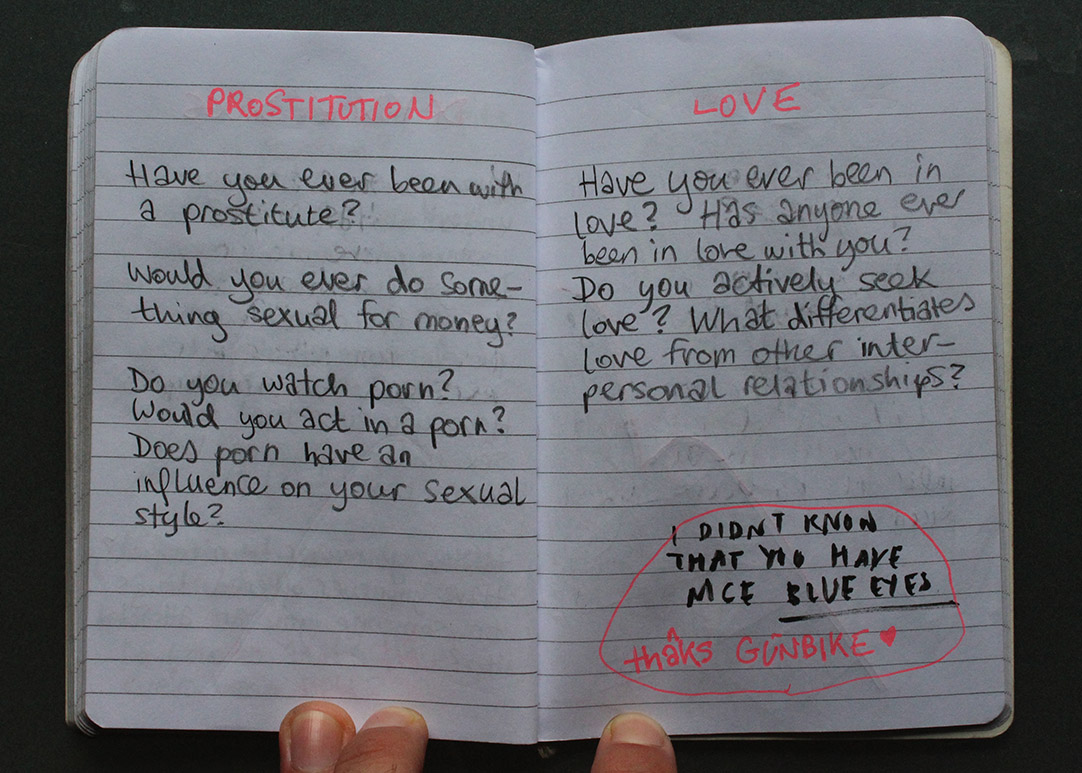 PROSTITUTION
Have you ever been with
a prostitute?
Would you ever do some-
thing sexual for money?
Do you watch porn?
Would you act in a porn?
Does porn have an
influence on your sexual
style?
LOVE
Have you ever been in
love? Has anyone ever
been in love with you?
Do you actively seek
love? What differentiates
love from other inter-
personal relationships?
I DIDNT KNON
THAT YOU HAVE
NICE BLUE EYES
thâks GÜNBIKE ♥